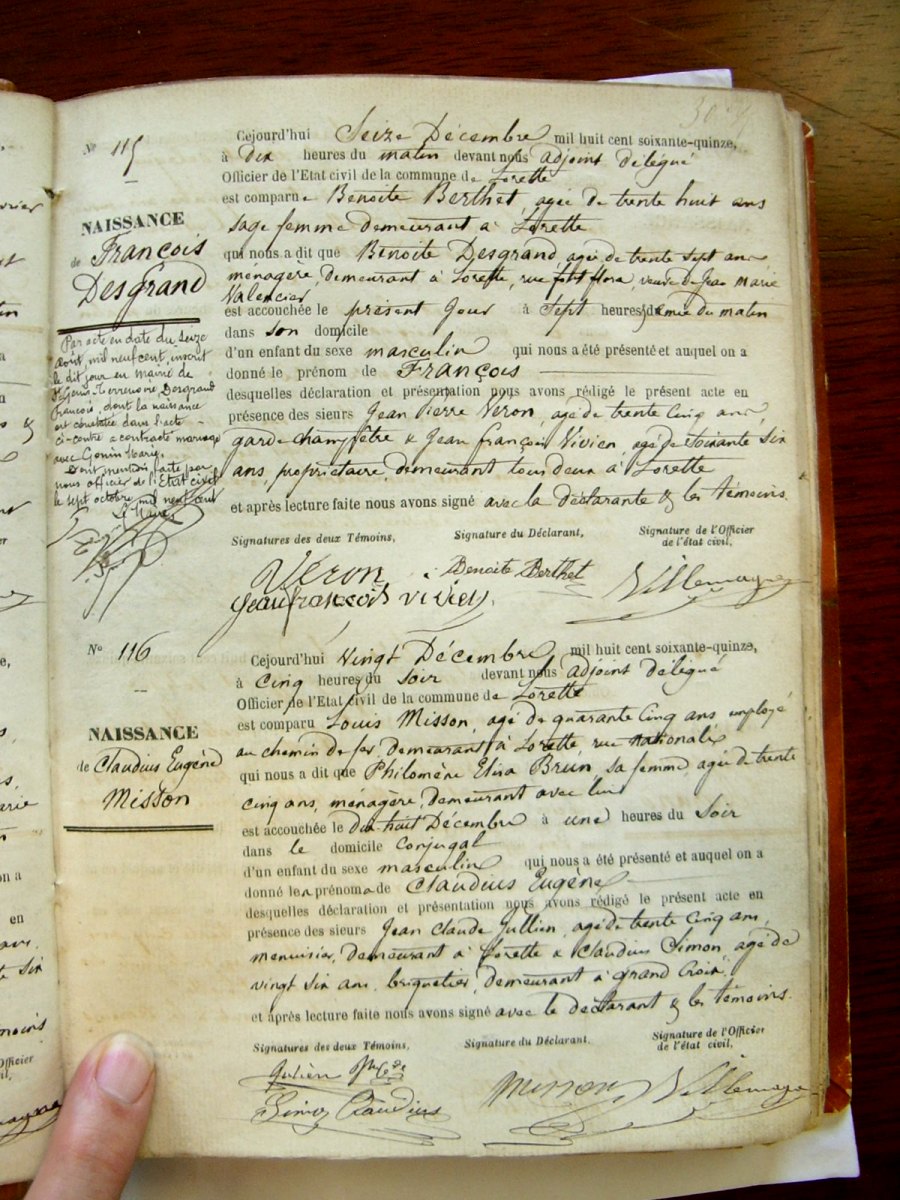 Nº 115
NAISSANCE
de François
Desgrand
Par acte en date du Seize
août, mil neuf cent, inscrit
le dit jour en mairie de
St Genis-Terrenoire Desgrand
François, dont la naissance
est constatée dans l'acte
ci-contre a contracté mariage
avec Gonin Marie.
Dont mention faite par
nous officier de l'Etat civil
le sept octobre mil neuf cent
Le Maire
Cejourd'hui Seize Décembre mil huit cent soixante-quinze,
à dix heures du matin devant nous adjoint délégué
Officier de l'Etat civil de la commune de Lorette
est comparue Benoite Berthet, agée de trente huit ans
sage femme demeurant à Lorette
qui nous a dit que Benoite Desgrand, agée de trente sept ans
menagère, demeurant à Lorette, rue veuve de Jean Marie
Valencier
est accouchée le présent Jour à Sept heures demie du matin
dans son domicile
d'un enfant du sexe masculin qui nous a été présenté et auquel on a
donné le prénom de François
desquelles déclaration et présentation nous avons rédigé le présent acte en
présence des sieurs Jean Pierre Véron, agé de trente Cinq ans,
garde champêtre & Jean François Vivien, agé de soixante six
ans, propriétaire, demeurant tous deux à Lorette
et après lecture faite nous avons signé avec la déclarante & les témoins.
Signatures des deux Témoins, Signature du Déclarant, Signature de l'Officier
de l'état civil,
Véron Benoite Berthet Villemagne
Jeanfrancois vivien
Nº 116
NAISSANCE
de Claudius Eugène
Misson
Cejourd'hui Vingt Décembre mil huit cent soixante-quinze,
à Cinq heures du Soir devant nous adjoint délégué
Officier de l'Etat civil de la commune de Lorette
est comparu Louis Misson, agé de quarante Cinq ans, employé
au chemin de fer demeurant à Lorette, rue Nationale
qui nous a dit que Philomène Elisa Brun, sa femme agée de trente
cinq ans, ménagère, demeurant avec lui
est accouchée le dix-huit Décembre à une heures du Soir
dans le domicile Conjugal
d'un enfant du sexe masculin qui nous a été présenté et auquel on a
donné les prénoms de Claudius Eugène
desquelles déclaration et présentation nous avons rédigé le présent acte en
présence des sieurs Jean Claude Jullien, agé de trente Cinq ans,
menuisier, demeurant à Lorette & Claudius Simon agé de
vingt six ans, briquetier, demeurant à grand Croix
et après lecture faite nous avons signé avec le déclarant & les témoins.
Signatures des deux Témoins, Signature du Déclarant. Signature de l'Officier
de l'état civil,
Julien Misson Villemagne
Simon Claudius